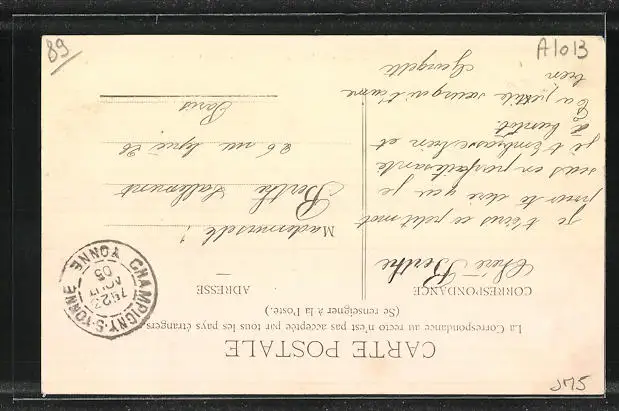 89
A1013
CARTE POSTALE
La Correspondance au recto n'est pas acceptée par tous les pays étrangers.
(Se renseigner à la Poste.)
CORRESPONDANCE
ADRESSE
Chère Berthe
je t'écris ce petit mot
pour te dire que je
suis en parfaite santé
je t'embrasse bien et
à bientôt.
Ta petite sœur qui t'aime
bien
Georgette
Mademoiselle
Berthe
26 rue
Paris
CHAMPIGNY-S-YONNE YONNE
23
AOUT
05
JM5